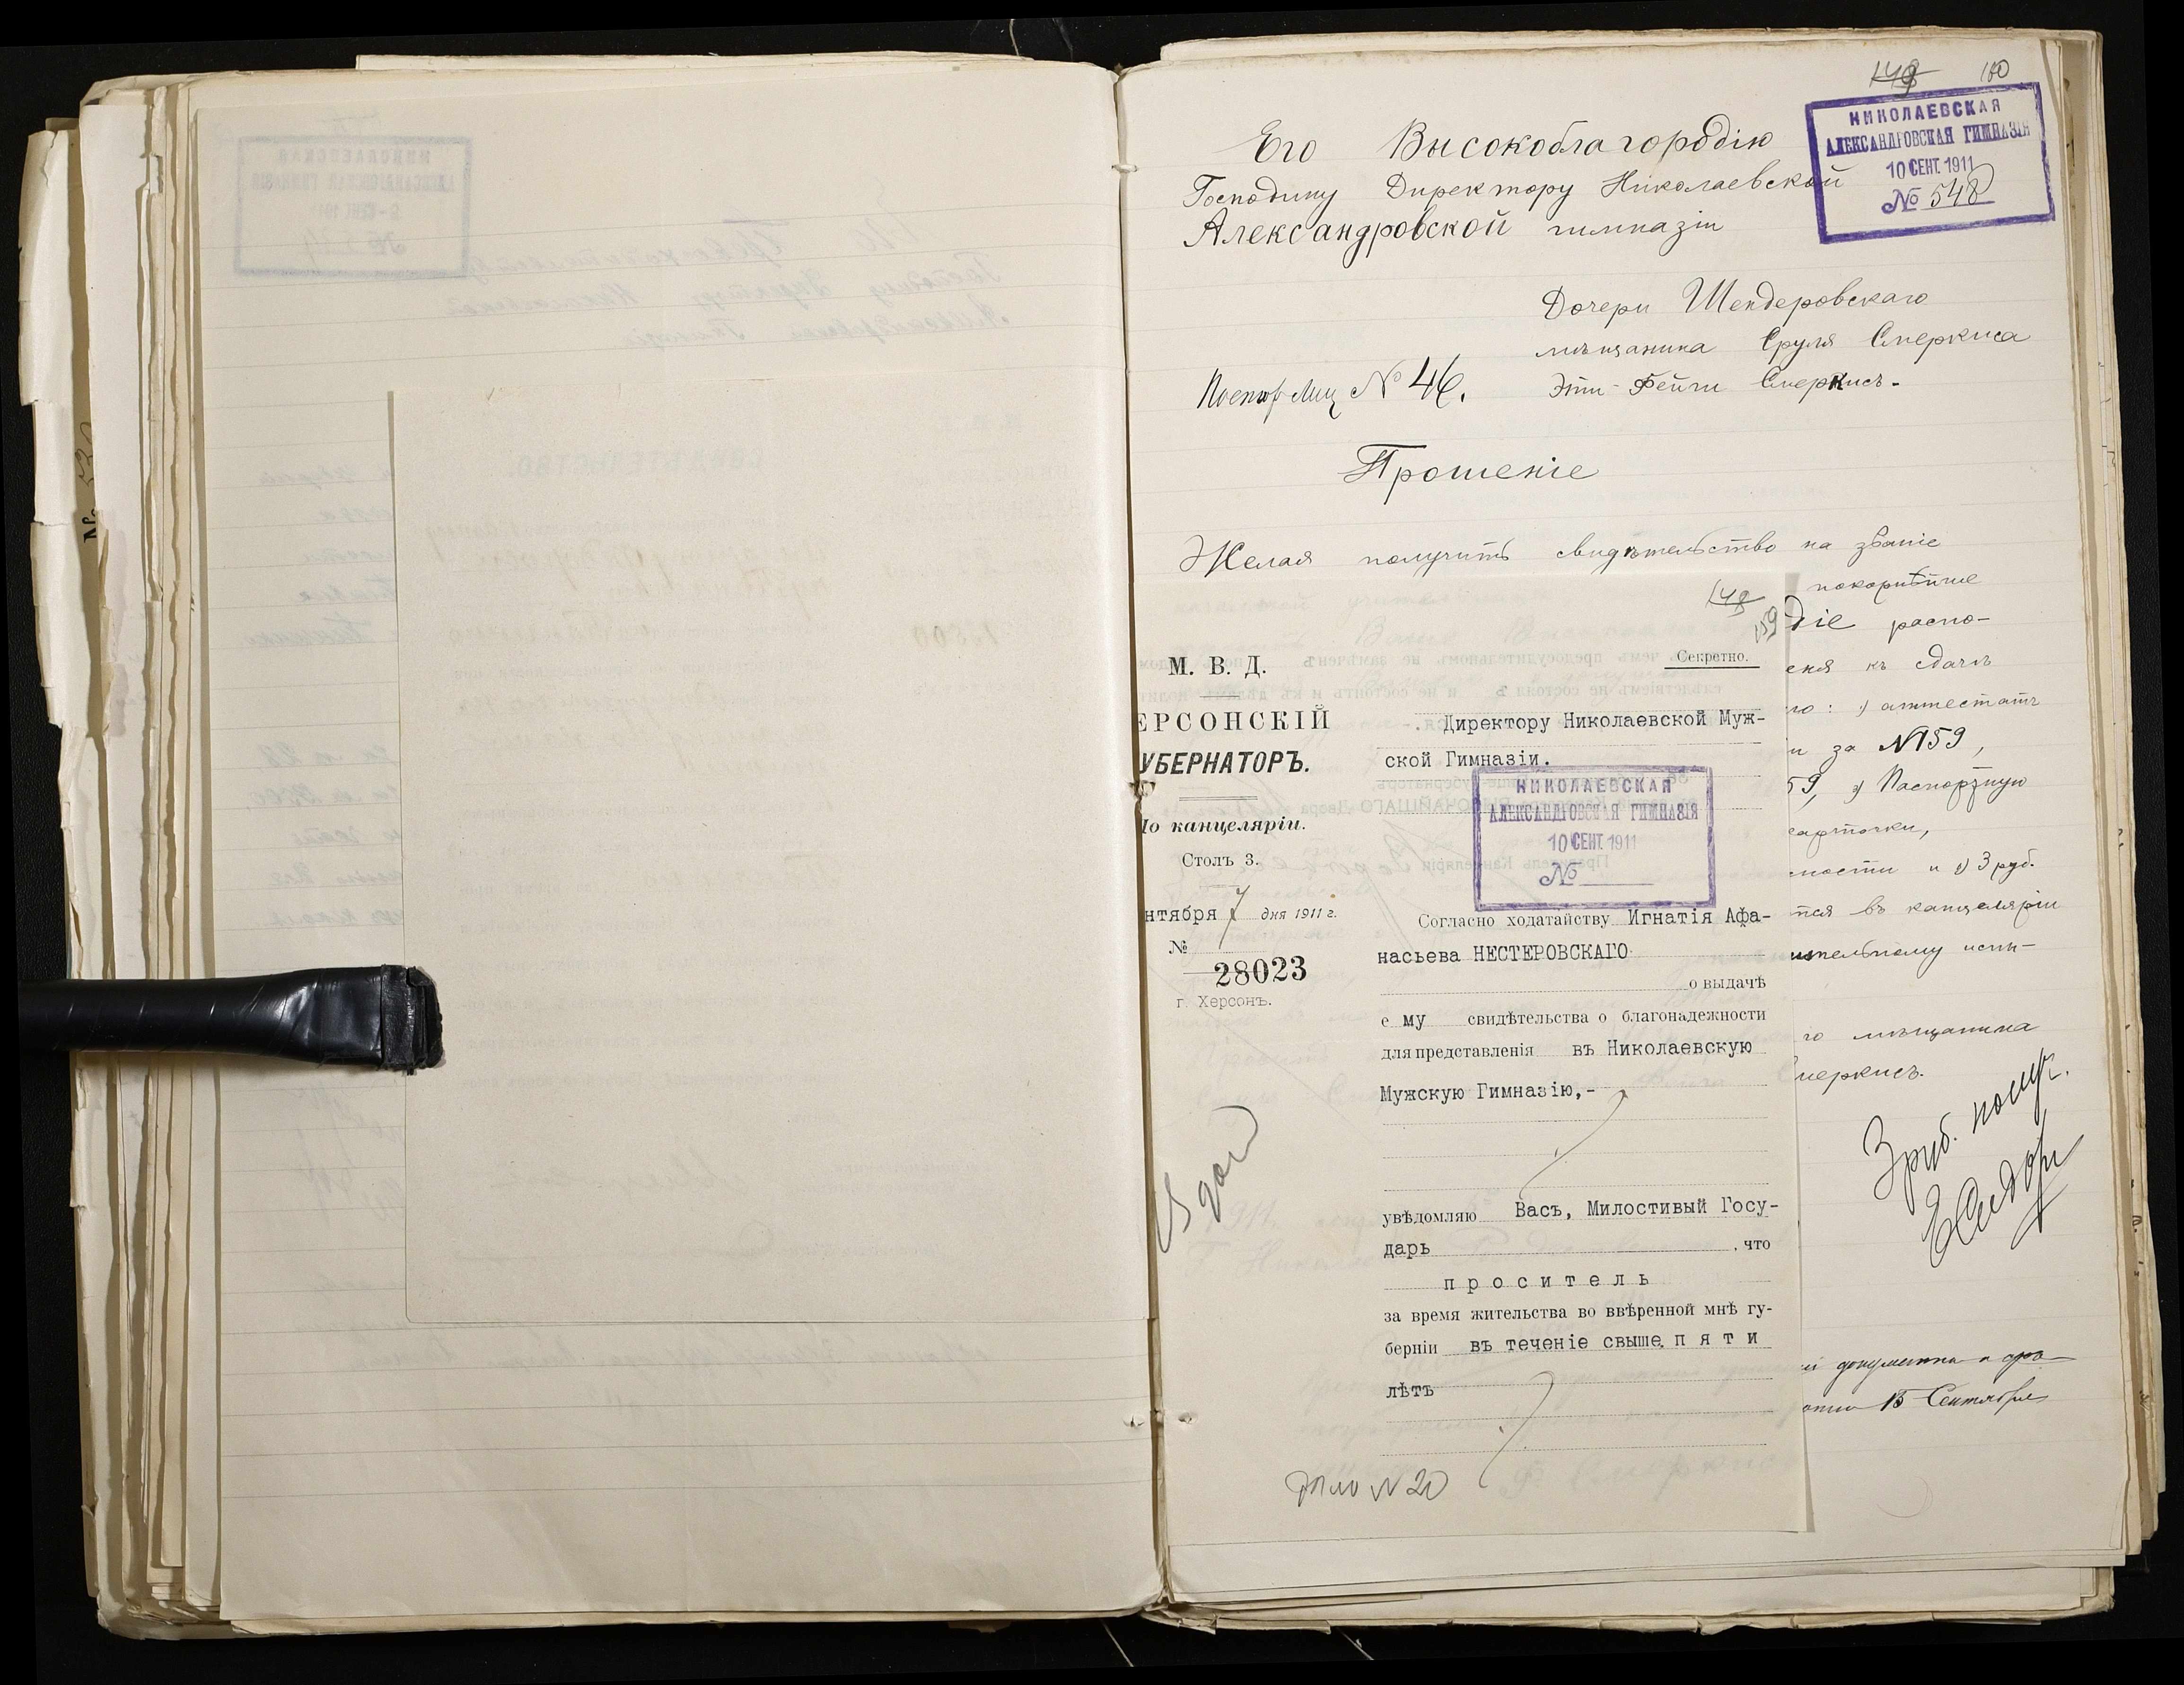 149 160
НИКОЛАЕВСКАЯ
АЛЕКСАНДРОВСКАЯ ГИМНАЗІЯ
10 СЕНТ. 1911
№ 548
Его Высокоблагородію
Господину Директору Николаевской
Александровской гимназіи
Дочери Шендеровскаго
мѣщанина Сруля Смеркиса
Эти-Фейги Смеркисъ.
№ 46.
Прошеніе
Желая получить свидѣтельство на званіе
покорнѣйше
діе распо-
енія къ сдачѣ
го: 1) аттестатъ
и за №159,
59, 3) Паспортную
карточки,
ности и 5) 3 руб.
тся въ канцеляріи
ительному испы-
го мѣщанина
меркисъ.
3 руб. получ.
й документы и
15 Сентября
148
159
М. В. Д.
Секретно.
ЕРСОНСКІЙ
УБЕРНАТОРЪ.
По канцеляріи.
Столъ 3.
нтября 7 дня 1911 г.
№
28023
г. Херсонъ.
Директору Николаевской Муж-
ской Гимназіи.
НИКОЛАЕВСКАЯ
АЛЕКСАНДРОВСКАЯ ГИМНАЗІЯ
10 СЕНТ. 1911
№
Согласно ходатайству Игнатія Афа-
насьева НЕСТЕРОВСКАГО
о выдачѣ
е му свидѣтельства о благонадежности
для представленія въ Николаевскую
Мужскую Гимназію,-
увѣдомляю Васъ, Милостивый Госу-
дарь , что
п р о с и т е л ь
за время жительства во ввѣренной мнѣ гу-
берніи въ теченіе свыше п я т и
лѣтъ
Дѣло № 20